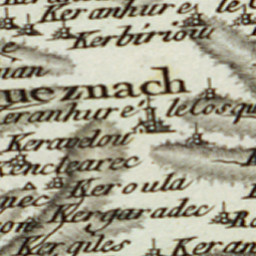 Keranhure
le
Kerbiriou
ueznach
eranhuré
le Cosqu
Keravelou
Kenclearec
Keroula
Kergaradec
Kergiles
Keran